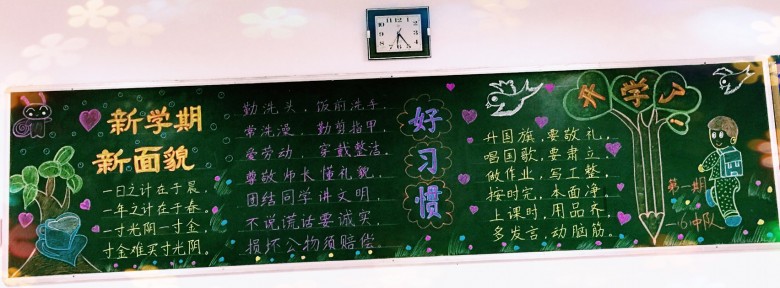 新学期
新面貌
一日之计在于晨,
一年之计在于春。
一寸光阴一寸金,
寸金难买寸光阴。
勤洗头,饭前洗手,
常洗澡,勤剪指甲,
爱劳动,穿戴整洁,
尊敬师长懂礼貌,
团结同学讲文明,
不说谎话要诚实,
损坏公物须赔偿。
好习惯
升国旗,要敬礼,
唱国歌,要肃立,
做作业,写工整,
按时完,本面净。
上课时,用品齐,
多发言,动脑筋。
开学了!
第一期
一(6)中队